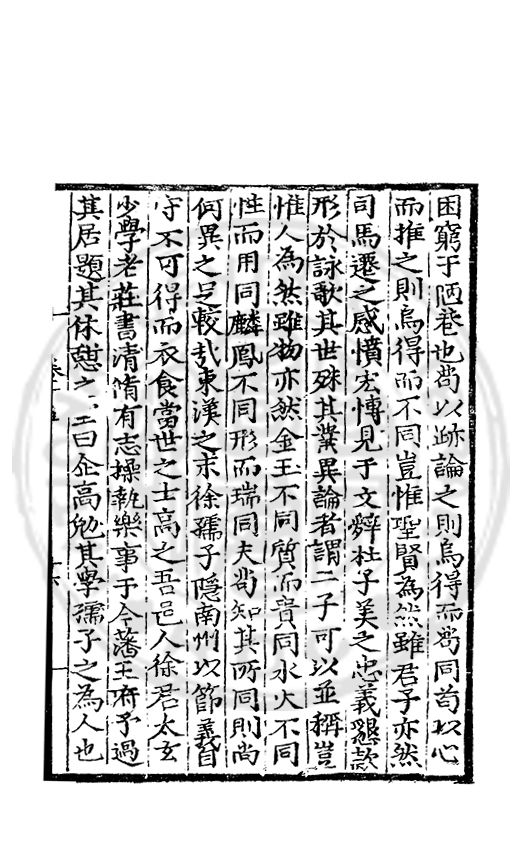 困窮于陋巷也尚以跡論之則烏得而尚同苟以心
而推之則烏得而不同豈惟聖賢為然雖君子亦然
司馬遷之感憤宏博見于文辭杜子美之忠義懇款
形於詠歌其世殊其業異論者謂二子可以並稱豈
惟人為然雖物亦然金玉不同質而貴同水火不同
性而用同麟鳳不同形而瑞同夫尚知其所同則尚
何異之足較哉東漢之末徐孺子隱南州以節義自
守不可得而衣食當世之士高之吾邑人徐君太玄
少學老莊書清脩有志操執樂事于今藩王府予過
其居題其休憩之
曰企高勉其學孺子之為人也